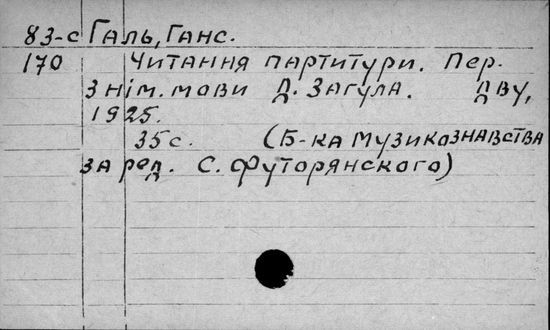 83-с Галь, Ганс.
170 Читання партитури. Пер.
з нім. мови Д. Загула. ДВУ,
1925.
35 с. (Б-ка музикознавства
за ред. С. Футорянского)